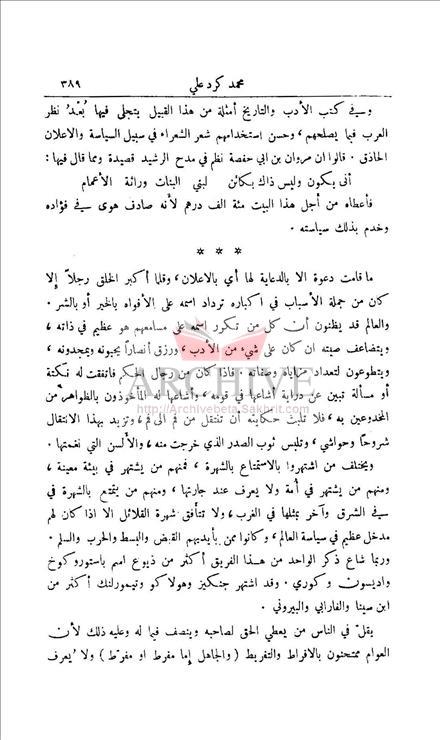 محمد كرد علي ٣٨٩
وفي كتب الأدب والتاريخ أمثلة من هذا القبيل يتجلى فيها بُعْدُ نظر
العرب فيما يصلحهم ، وحسن إستخدامهم شعر الشعراء في سبيل السياسة والاعلان
الحاذق . قالوا ان مروان بن ابي حفصة نظم في مدح الرشيد قصيدة ومما قال فيها :
أنى يكون وليس ذاك بكائن لبني البنات وراثة الأعمام
فأعطاه من أجل هذا البيت مئة الف درهم لأنه صادف هوى في فؤاده
وخدم بذلك سياسته .
* * *
ما قامت دعوة الا بالدعاية لها أي بالاعلان ، وقلما أكبر الخلق رجلاً إلا
كان من جملة الأسباب في اكباره ترداد اسمه على الأفواه بالخير أو بالشر .
والعالم قد يظنون أن كل من تكرر اسمه على مسامعهم هو عظيم في ذاته ،
ويتضاعف صيته ان كان على شيء من الأدب ، ورزق أنصاراً يحبونه ويمجدونه ،
ويتطوعون لتعداد مزاياه وصفاته . فاذا كان من رجال الحكم فاتفقت له نكتة
أو مسألة تبين عن دراية أشاعها في قومه ، وأشاعها له المأخوذون بالظواهر من
المخدوعين به ، فلا تلبث حكايته أن تنتقل من فم الى فم ، وتزيد بهذا الانتقال
شروحاً وحواشي ، وتلبس ثوب الصدر الذي خرجت منه ، والألسن التي نغمتها .
ويختلف من اشتهروا بالاستمتاع بالشهرة ، فمنهم من يشتهر في بيئة معينة ،
ومنهم من يشتهر في أمة ولا يعرف عند جارتها ، ومنهم من يتمتع بالشهرة في
في الشرق وآخر بمثلها في الغرب ، ولا تتأفق شهرة القلائل الا اذا كان لهم
مدخل عظيم في سياسة العالم ، وكانوا ممن بأيديهم القبض والبسط والحرب والسلم .
وربما شاع ذكر الواحد من هذا الفريق أكثر من ذيوع اسم باستوروكوخ
واديسون وكوري . وقد اشتهر جنكيز وهولاكو وتيمورلنك أكثر من
ابن سينا والفارابي والبيروني .
يقلّ في الناس من يعطي الحق لصاحبه وينصف فيما له وعليه ذلك لأن
العوام ممتحنون بالافراط والتفريط ( والجاهل إما مفرط او مفرّط ) ولا يُعرف
ARCHIVE
http://Archivebeta.Sakhrit.com